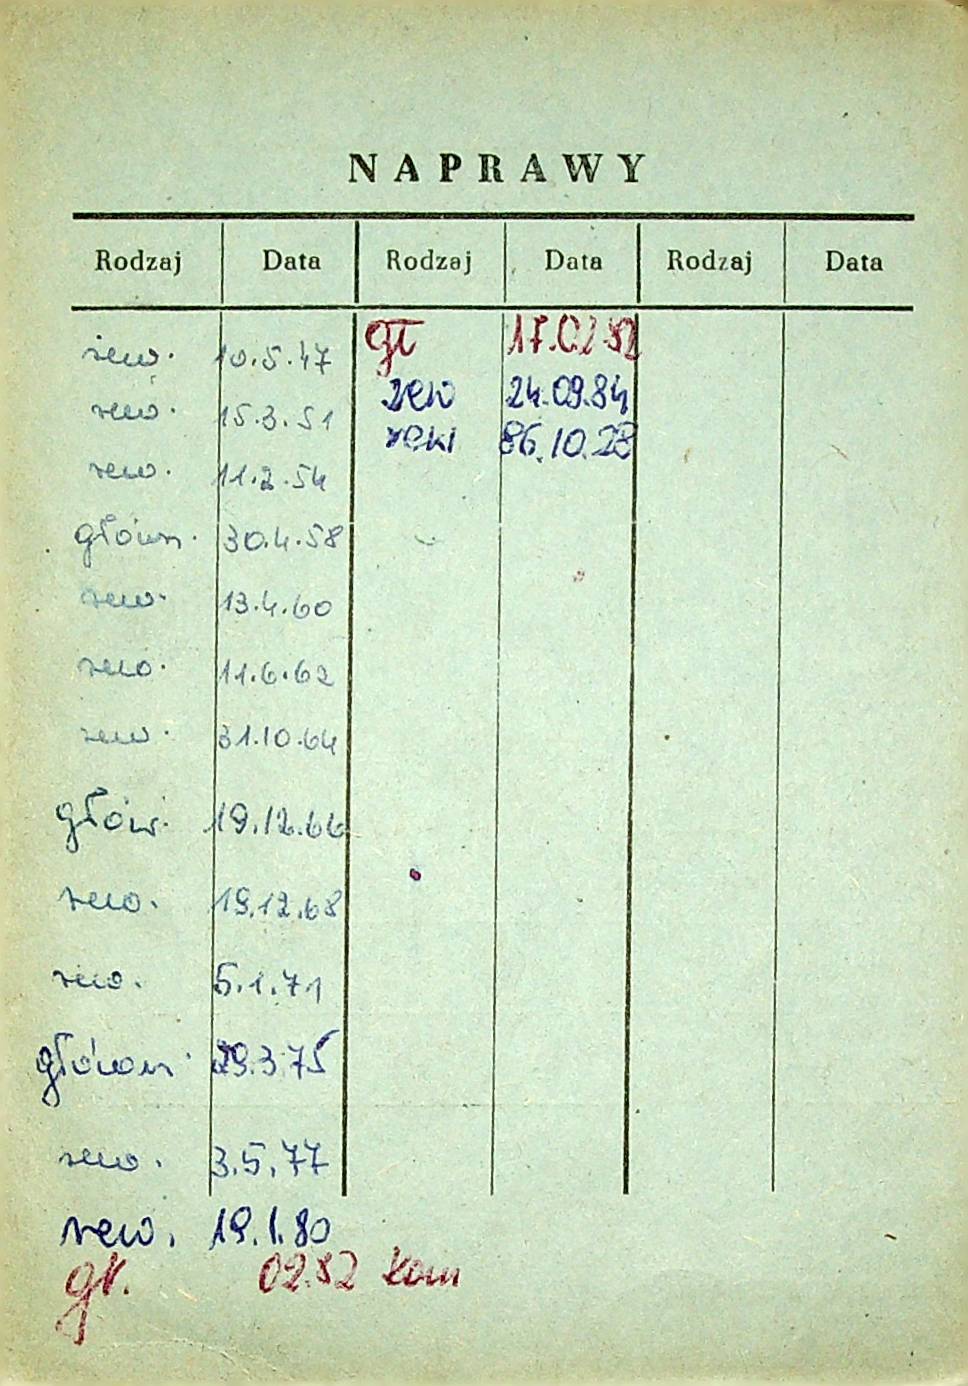 NAPRAWY
Rodzaj Data Rodzaj Data Rodzaj Data
rew. 10.5.47 gł 17.02.82
rew. 15.3.51 rew 24.09.84
rew. 11.2.54 reki 86.10.28
główn. 30.4.58
rew. 13.4.60
rew. 11.6.62
rew. 31.10.64
głów. 19.12.66
rew. 19.12.68
rew. 5.1.71
główn. 29.3.75
rew. 3.5.77
rew. 19.1.80
gł. 02.82 kom